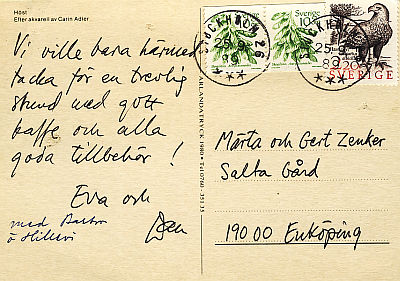 Höst
Efter akvarell av Carin Adler
Vi ville bara härmed
tacka för en trevlig
stund med gott
kaffe och alla
goda tillbehör !
Eva och
med
STOCKHOLM
25-9
89
Sverige
10
STOCKHOLM
25-9
89
SVERIGE
Märta och Gert Zenker
Salta Gård
190 00 Enköping